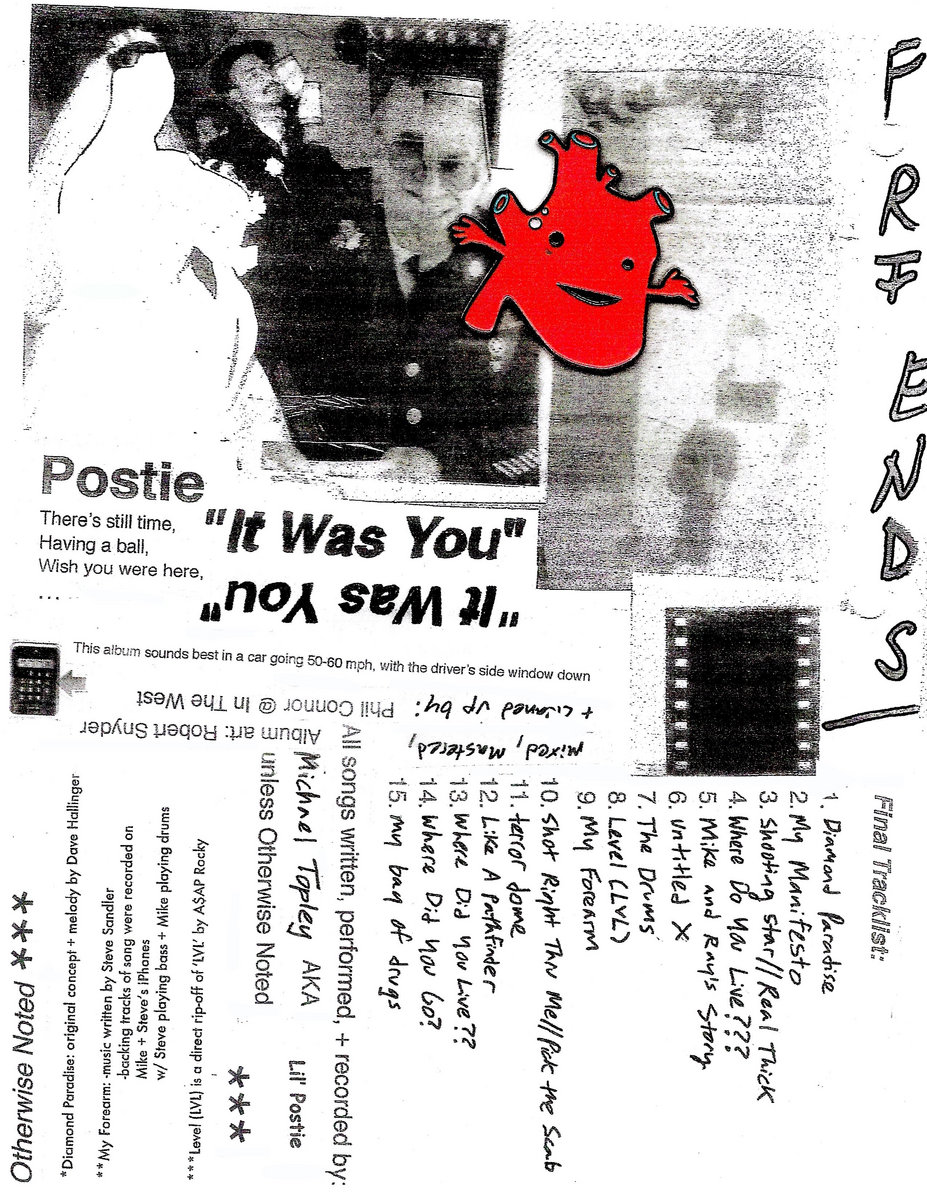 FRIENDS/
Postie
There's still time,
Having a ball,
Wish you were here,
...
"It Was You"
"It Was You"
This album sounds best in a car going 50-60 mph, with the driver's side window down
mixed, mastered,
+ cleaned up by:
Phil Connor @ In The West
Album art: Robert Snyder
All songs written, performed, + recorded by:
Michael Topley AKA Lil' Postie
unless Otherwise Noted
***
Final Tracklist:
1. Diamond Paradise
2. My Manifesto
3. Shooting Star//Real Thick
4. Where Do You Live???
5. Mike and Ray's Story
6. untitled X
7. The Drums
8. Level (LVL)
9. My Forearm
10. Shot Right Thru Me//Pick the Scab
11. terror dome
12. Like A Pathfinder
13. Where Did You Live??
14. Where Did You Go?
15. my bag of drugs
Otherwise Noted ***
*Diamond Paradise: original concept + melody by Dave Hallinger
**My Forearm: -music written by Steve Sandler
-backing tracks of song were recorded on
Mike + Steve's iPhones
w/ Steve playing bass + Mike playing drums
***Level (LVL) is a direct rip-off of 'LVL' by A$AP Rocky